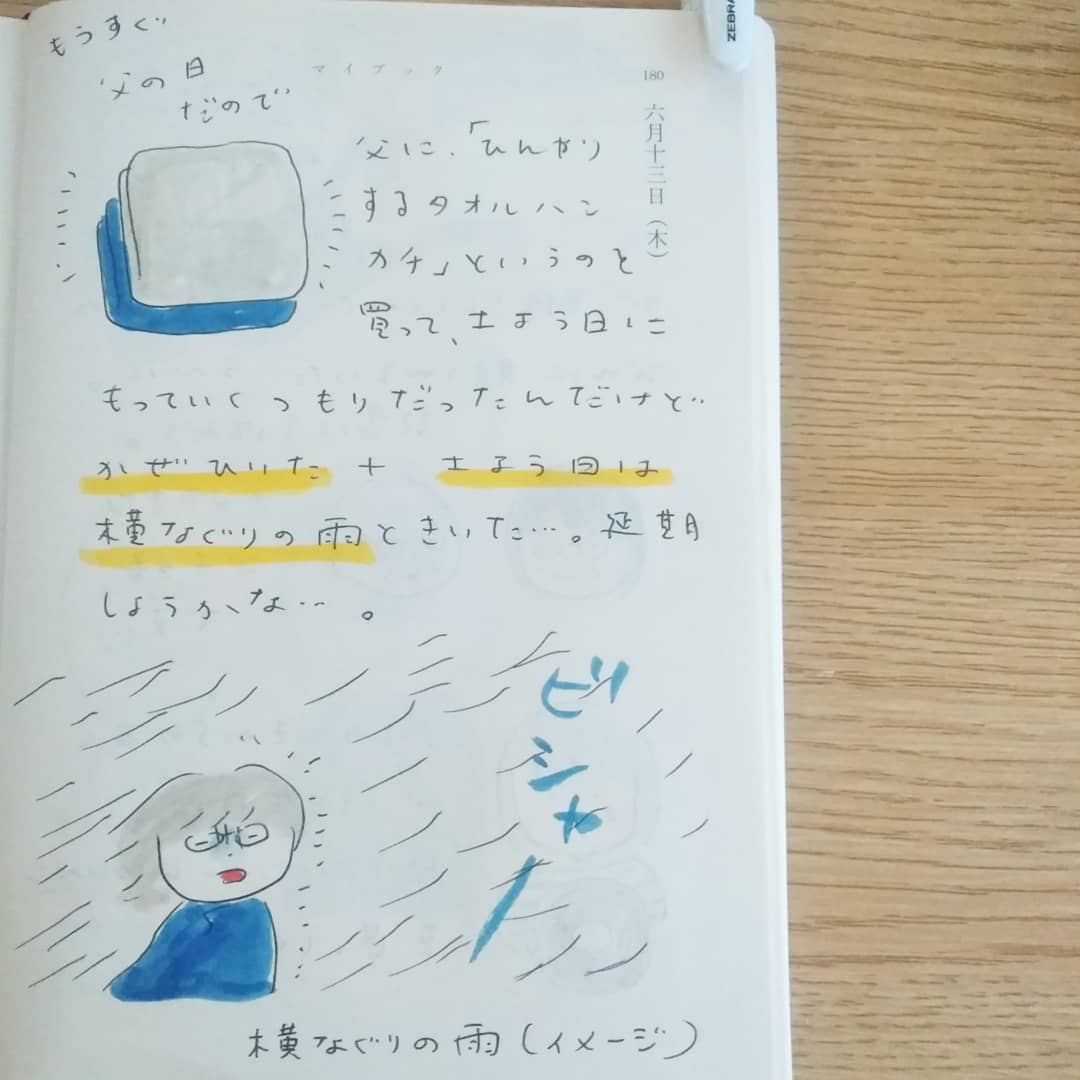 もうすぐ
父の日
だので
マイブック
180
六月十三日（木）
父に、「ひんやり
するタオルハン
カチ」というのを
買って、土よう日に
もっていくつもりだったんだけど
かぜひいた + 土よう日は
横なぐりの雨ときいた…。延期
しようかな…。
ビシャー
横なぐりの雨(イメージ)
ZEBRA